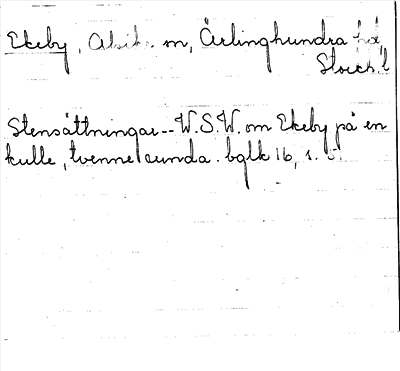 Ekeby, Alsike m, Ärlinghundra hd,
Stock. l
Stensättningar -- W.S.W. om Ekeby på en
kulle, tvenne runda. bglk 16, s.